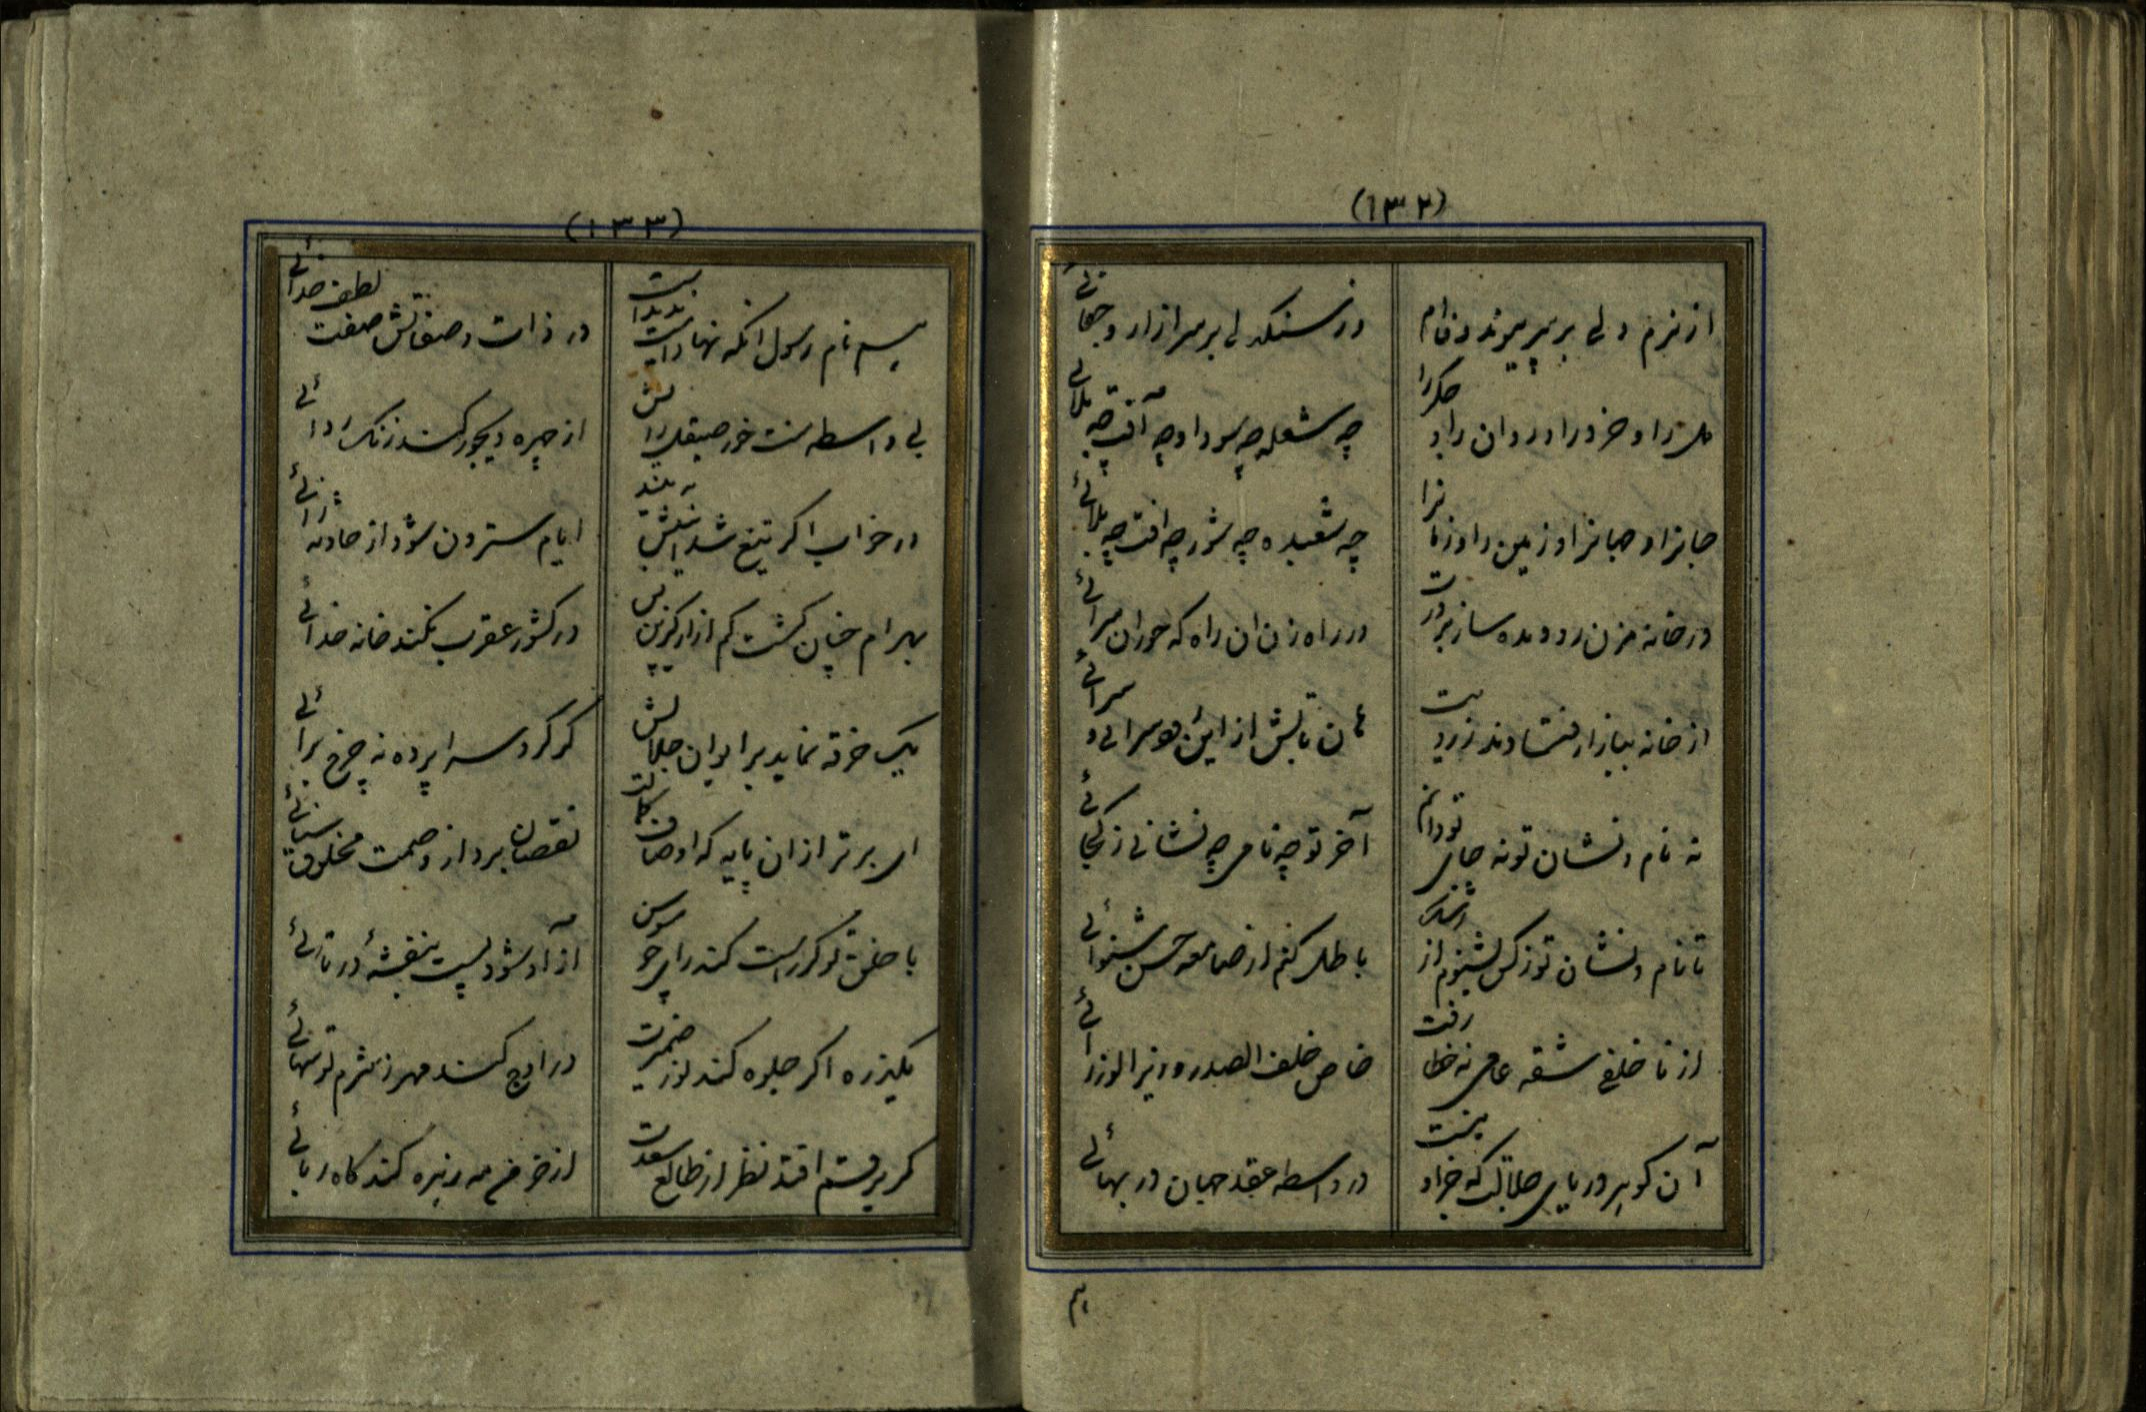 (۱۳۲)
از نرم دلی بر سر پیوند و
در سنکدلی بر سر ازار و جفائی
دل را و خرد را و روان را و جکر را
چه شعله چه سودا و چه آفت چه بلائی
جانرا و جهانرا و زمین را و زمانرا
چه شعبده چه شور چه افت چه بلائی
در خانه مزن ره و مده ساز
در راه زنان ان راه که حوران سرائی
از خانه ببازار فتادند
تابش از این هوسرائی و سرائی
نه نام و نشان تو نه جای تو دانم
آخر تو چه نامی چه نشانی ز کجائی
تا نام و نشان تو ز کس نشنوم از رشک
باطل کنم از صامعه حس شنوائی
از ناخلفی شقه عامی نه خطا رفت
خاص خلف الصدر وزیر الوزرائی
آن کوهر دریای جلالت که خرد
در واسطه عقد جهان در بهائی
(۱۳۳)
هم نام رسول انکه نهادست
در ذات و صفاتش صفت لطف خدائی
بی واسطه سنت خور صیقل
از چهره دیجور کند زنک زدائی
در خواب اکر تیغ به بیند
ایام سترون شود از حادثه زائی
بهرام چنان کشت کم ازار کزین پس
در کشور عقرب نکند خانه خدائی
یک خرقه نماید بر ایوان جلالش
کر کرد سراپرده نه چرخ برائی
ای برتر از ان پایه که اوصاف کمالت
نقصان برد از وصمت مخلوق ستائی
با خلق تو کر راست کند رای چو سوسن
از آد شود پست بنفشه دوتائی
یکذره اکر جلوه کند نور ضمیرت
در اوج کند مهر ز شرم تو سهائی
کر بر فتد نظر از طالع سعدت
از خرمن مه زهره کند کاه ربائی